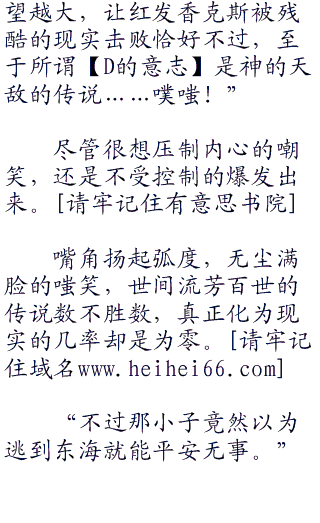 望越大，让红发香克斯被残
酷的现实击败恰好不过，至
于所谓【D的意志】是神的天
敌的传说……噗嗤！”
尽管很想压制内心的嘲
笑，还是不受控制的爆发出
来。[请牢记住有意思书院]
嘴角扬起弧度，无尘满
脸的嗤笑，世间流芳百世的
传说数不胜数，真正化为现
实的几率却是为零。[请牢记
住域名www.heihei66.com]
“不过那小子竟然以为
逃到东海就能平安无事。”